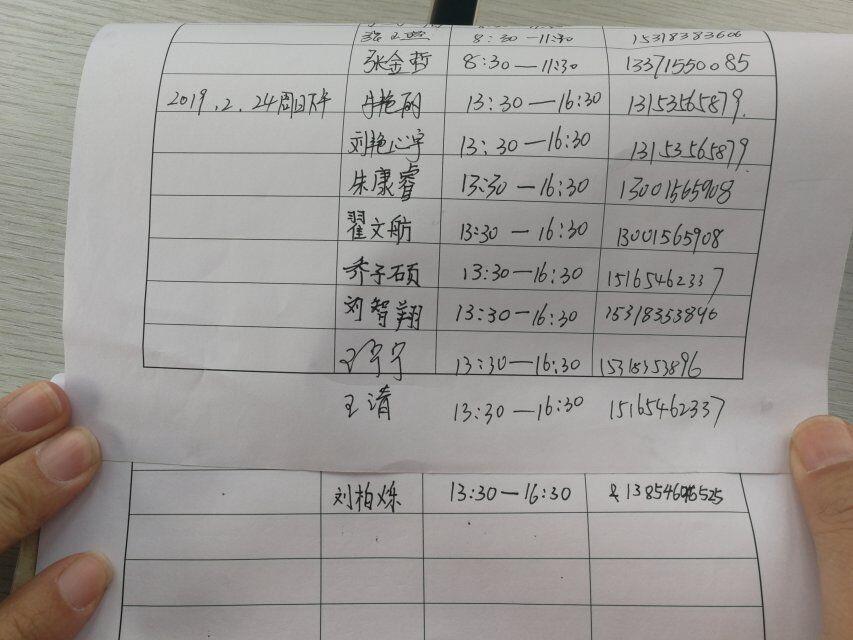 8:30—11:30 15318383606
张金哲 8:30—11:30 13371550085
2019.2.24周日下午 牛艳丽 13:30—16:30 13153565879.
刘艳心宇 13:30—16:30 13153565879.
朱康睿 13:30—16:30 13001565908
翟文舫 13:30—16:30 13001565908
乔子硕 13:30—16:30 15165462337
刘智翔 13:30—16:30 15318353896
王宁宁 13:30—16:30 1531353896
王清 13:30—16:30 15165462337
刘柏烁 13:30—16:30